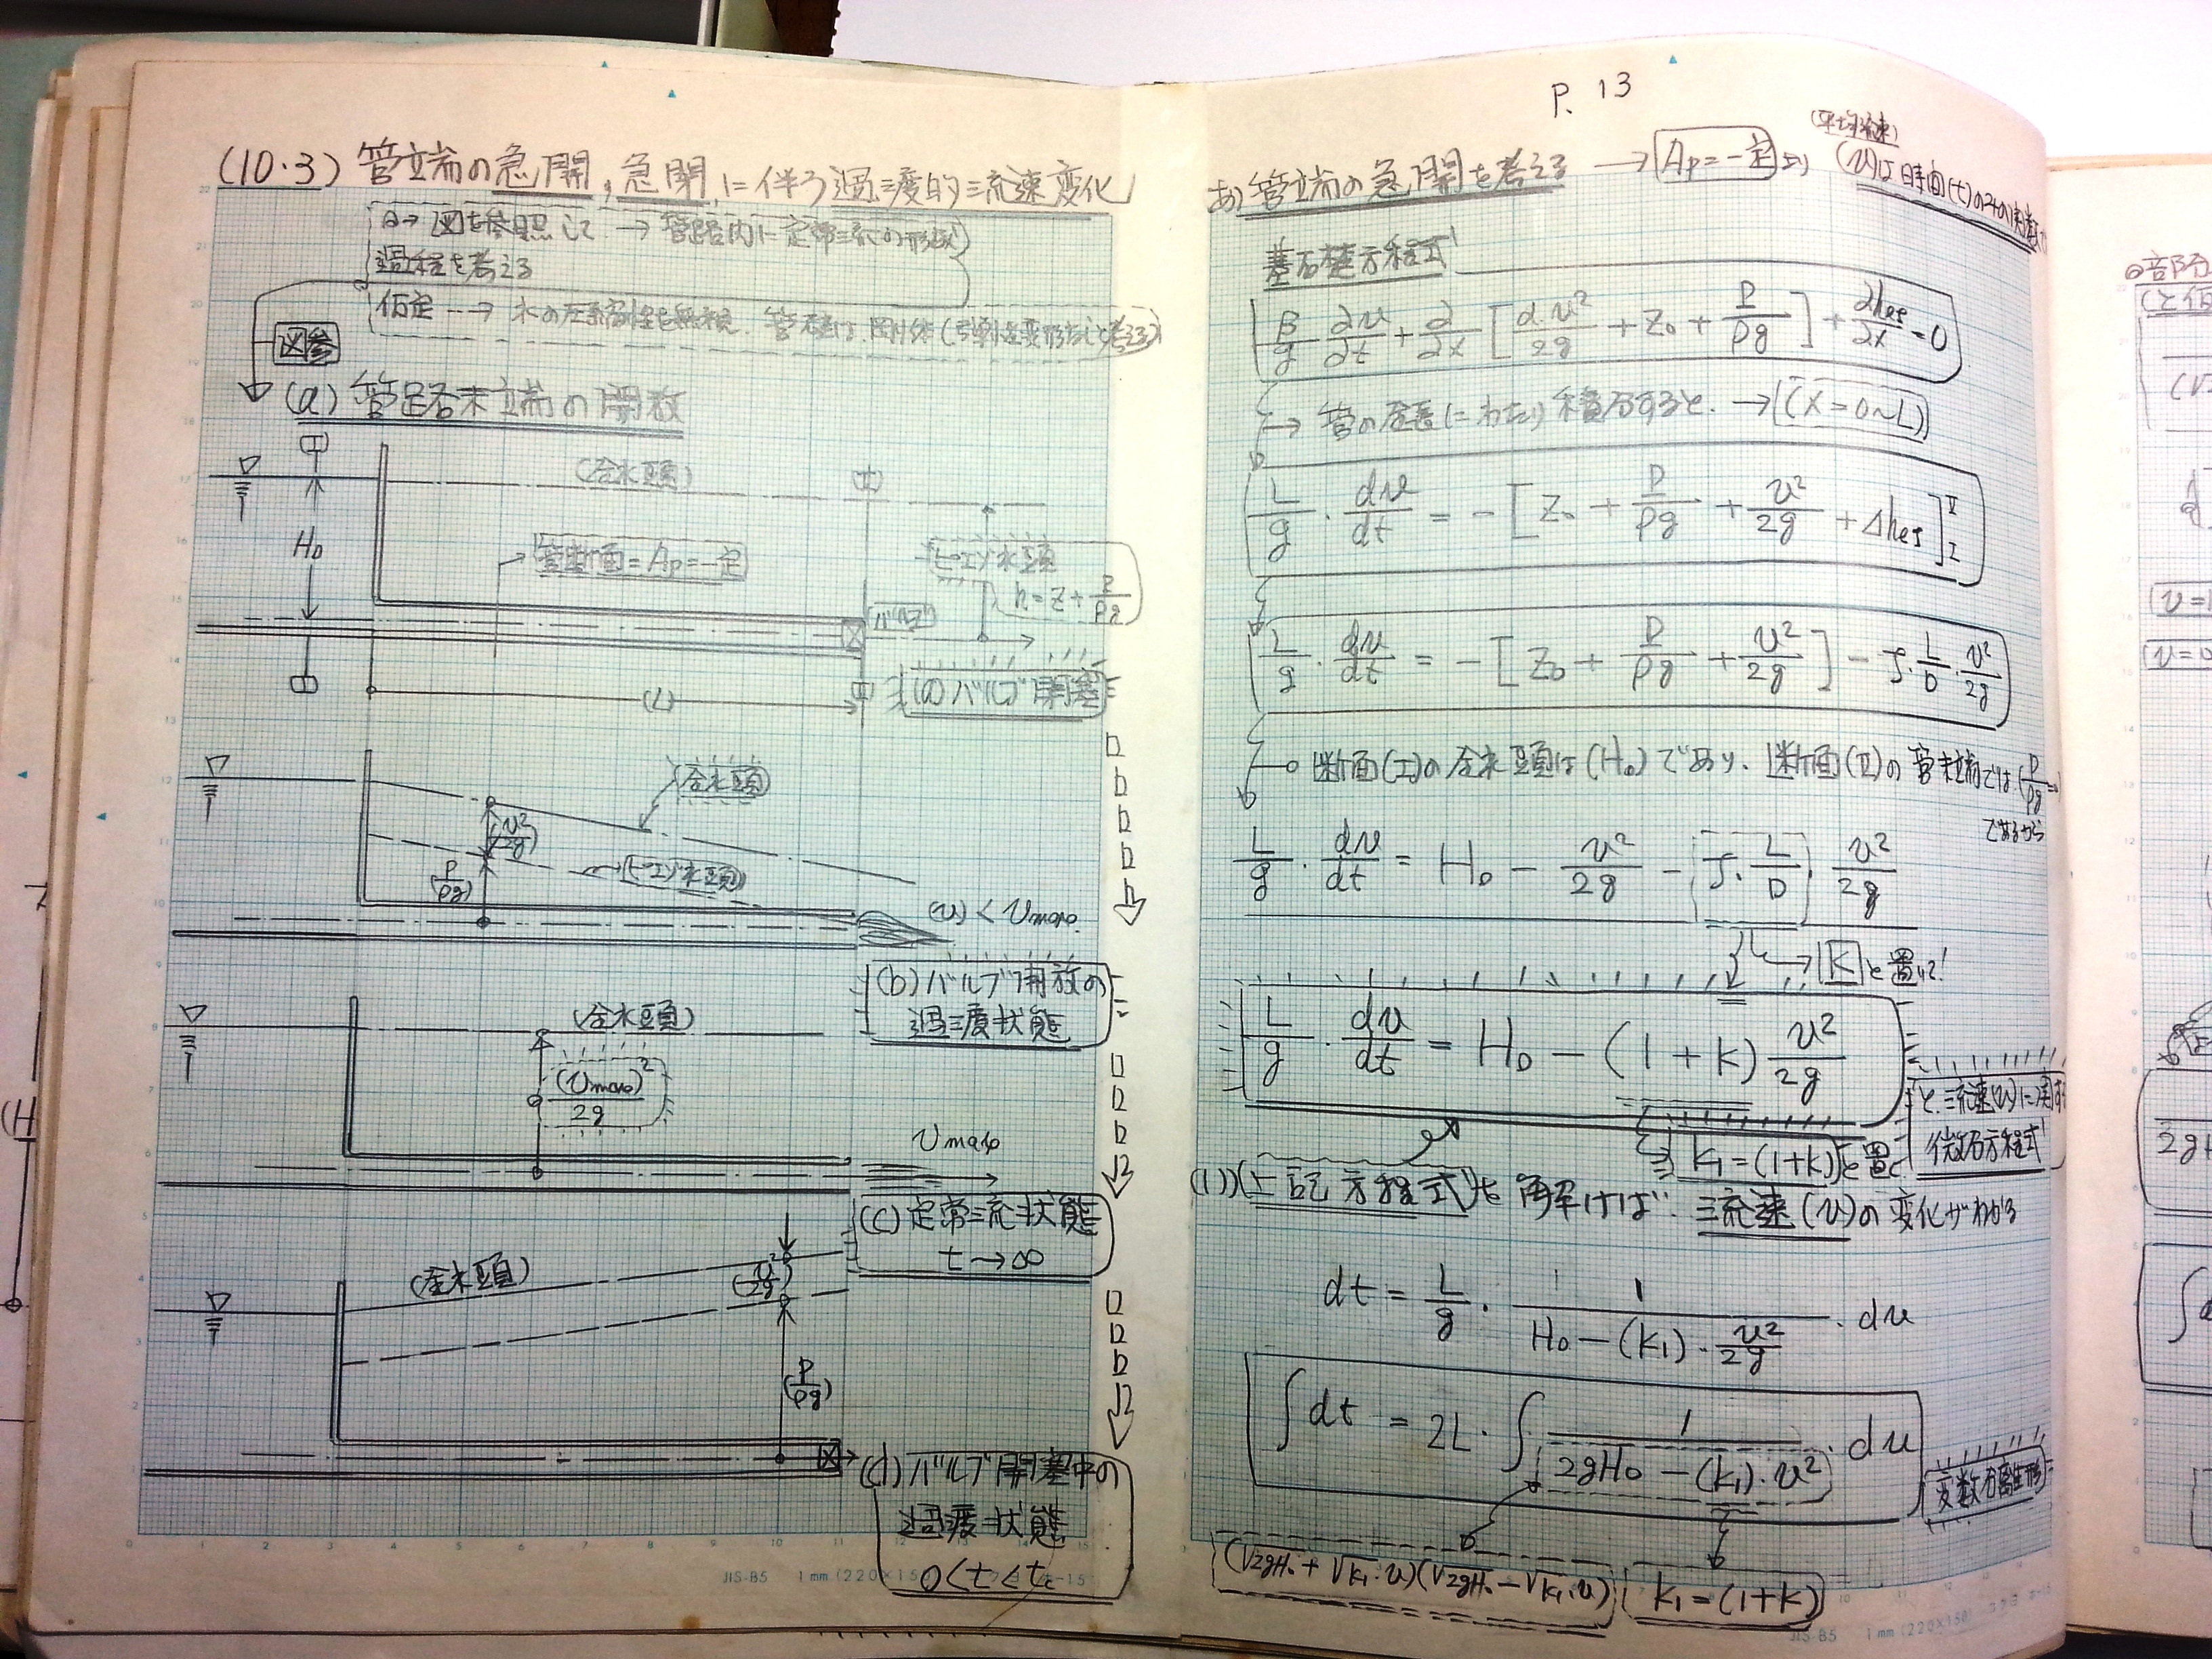 (10・3) 管端の急開,急閉,に伴う過渡的流速変化
→ 図を参照して → 管路内に定常流の形成
過程を考える
仮定 → 水の圧縮性を無視、管壁は、剛体
図参
(a) 管路末端の開放
(全水頭)
H₀
管断面=Ap=一定
ピエゾ水頭
h=z+P/ρg
バルブ
(L)
(a) バルブ閉塞
(全水頭)
(v²/2g)
(P/ρg)
(ピエゾ水頭)
(v) < vmax.
(b) バルブ開放の
過渡状態
(全水頭)
(vmax)²/2g
vmax
(c) 定常流状態
t→∞
(全水頭)
(v²/2g)
(P/ρg)
(d) バルブ閉塞中の
過渡状態
0<t<tc
JIS-B5 1mm (220×150)
P. 13
(平均流速)
あ) 管端の急開を考える → Ap=一定 より (v)は時間(t)のみの関数
基礎方程式
β/g ∂v/∂t + ∂/∂x [α v²/2g + Z₀ + P/ρg] + ∂hes/∂x = 0
→ 管の全長にわたり積分すると. → (X=0~L)
L/g · dv/dt = -[Z₀ + P/ρg + v²/2g + Δhes]Ⅱ Ⅰ
L/g · dv/dt = -[Z₀ + P/ρg + v²/2g] - f·L/D·v²/2g
断面(Ⅰ)の全水頭は(H₀)であり、断面(Ⅱ)の管末端では(P/ρg=0)
であるから
L/g · dv/dt = H₀ - v²/2g - f·L/D · v²/2g
K と置く!
L/g · dv/dt = H₀ - (1+K) v²/2g
と、流速(v)に関する
微分方程式
K₁=(1+K)と置く
(1)) (上記方程式)を解けば 流速(v)の変化がわかる
dt = L/g · 1/(H₀-(K₁)·v²/2g) · dv
∫dt = 2L · ∫ 1/(2gH₀-(K₁)·v²) · dv
変数分離形
(√2gH₀+√K₁·v)(√2gH₀-√K₁·v)
K₁=(1+K)
JIS-B5 1mm (220×150)